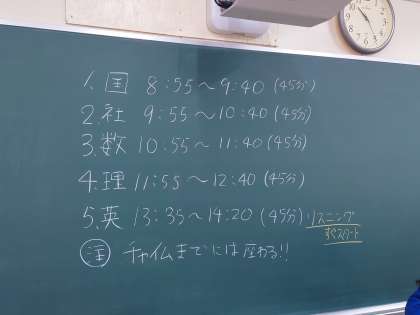 1. 国 8:55～9:40 (45分)
2. 社 9:55～10:40 (45分)
3. 数 10:55～11:40 (45分)
4. 理 11:55～12:40 (45分)
5. 英 13:35～14:20 (45分) リスニング
すぐスタート
注 チャイムまでには座わる!!